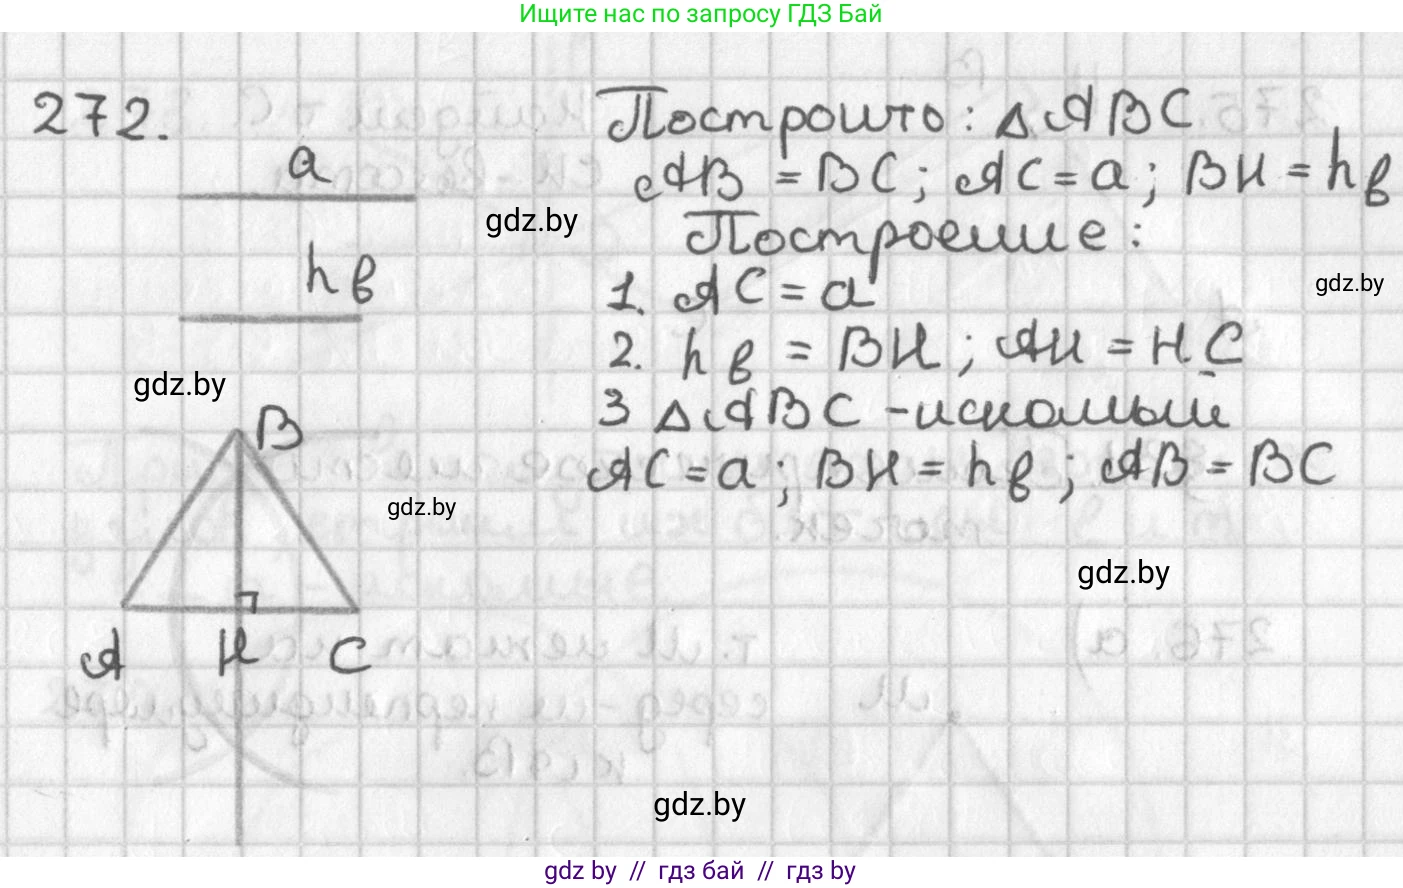 Ищите нас по запросу ГДЗ Бай
272.
a
hв
Построить: △ABC
AB = BC; AC = a; BH = hв
Построение:
1. AC = a
2. hв = BH; AH = HC
3 △ABC - искомый
AC = a; BH = hв; AB = BC
B
A H C
gdz.by
gdz.by
gdz.by
gdz.by
gdz.by
gdz.by
gdz by // гдз бай // гдз by